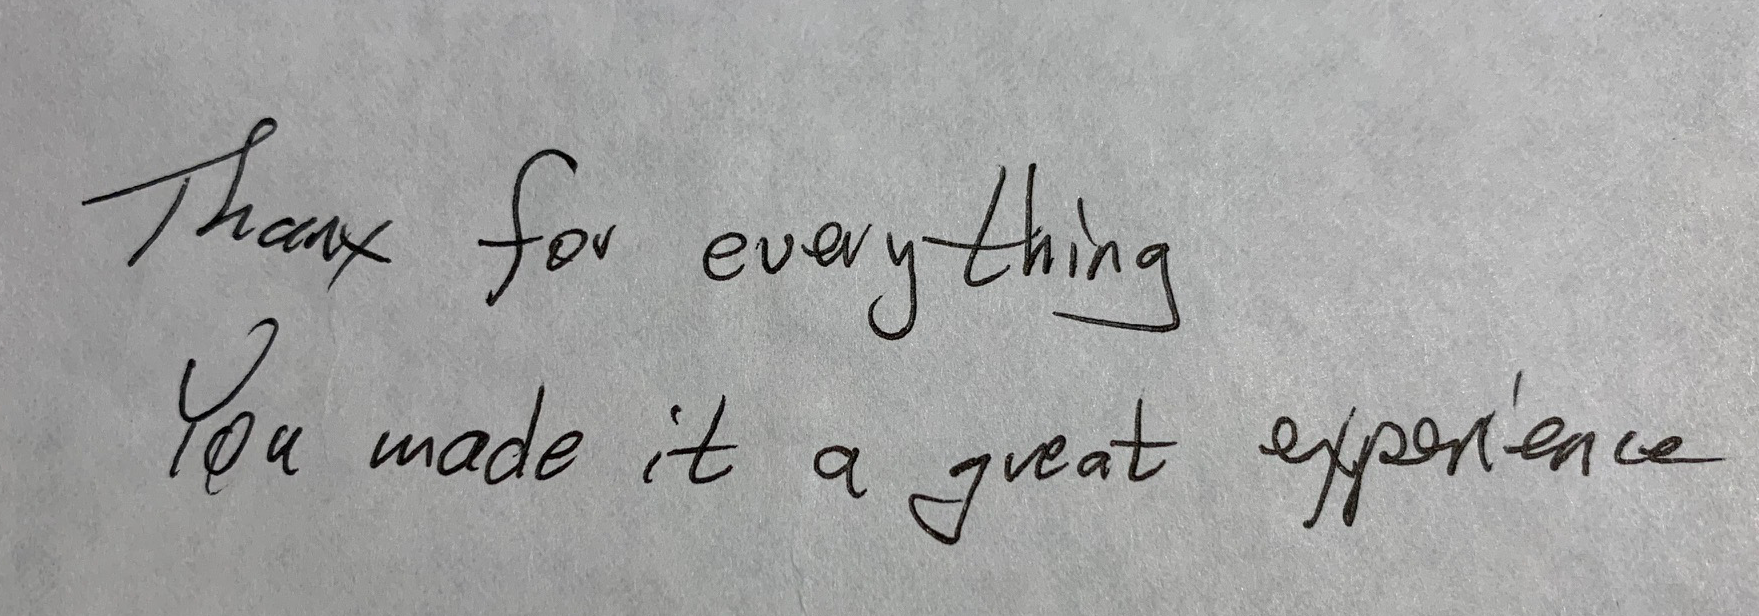 Thanx for everything
You made it a great experience